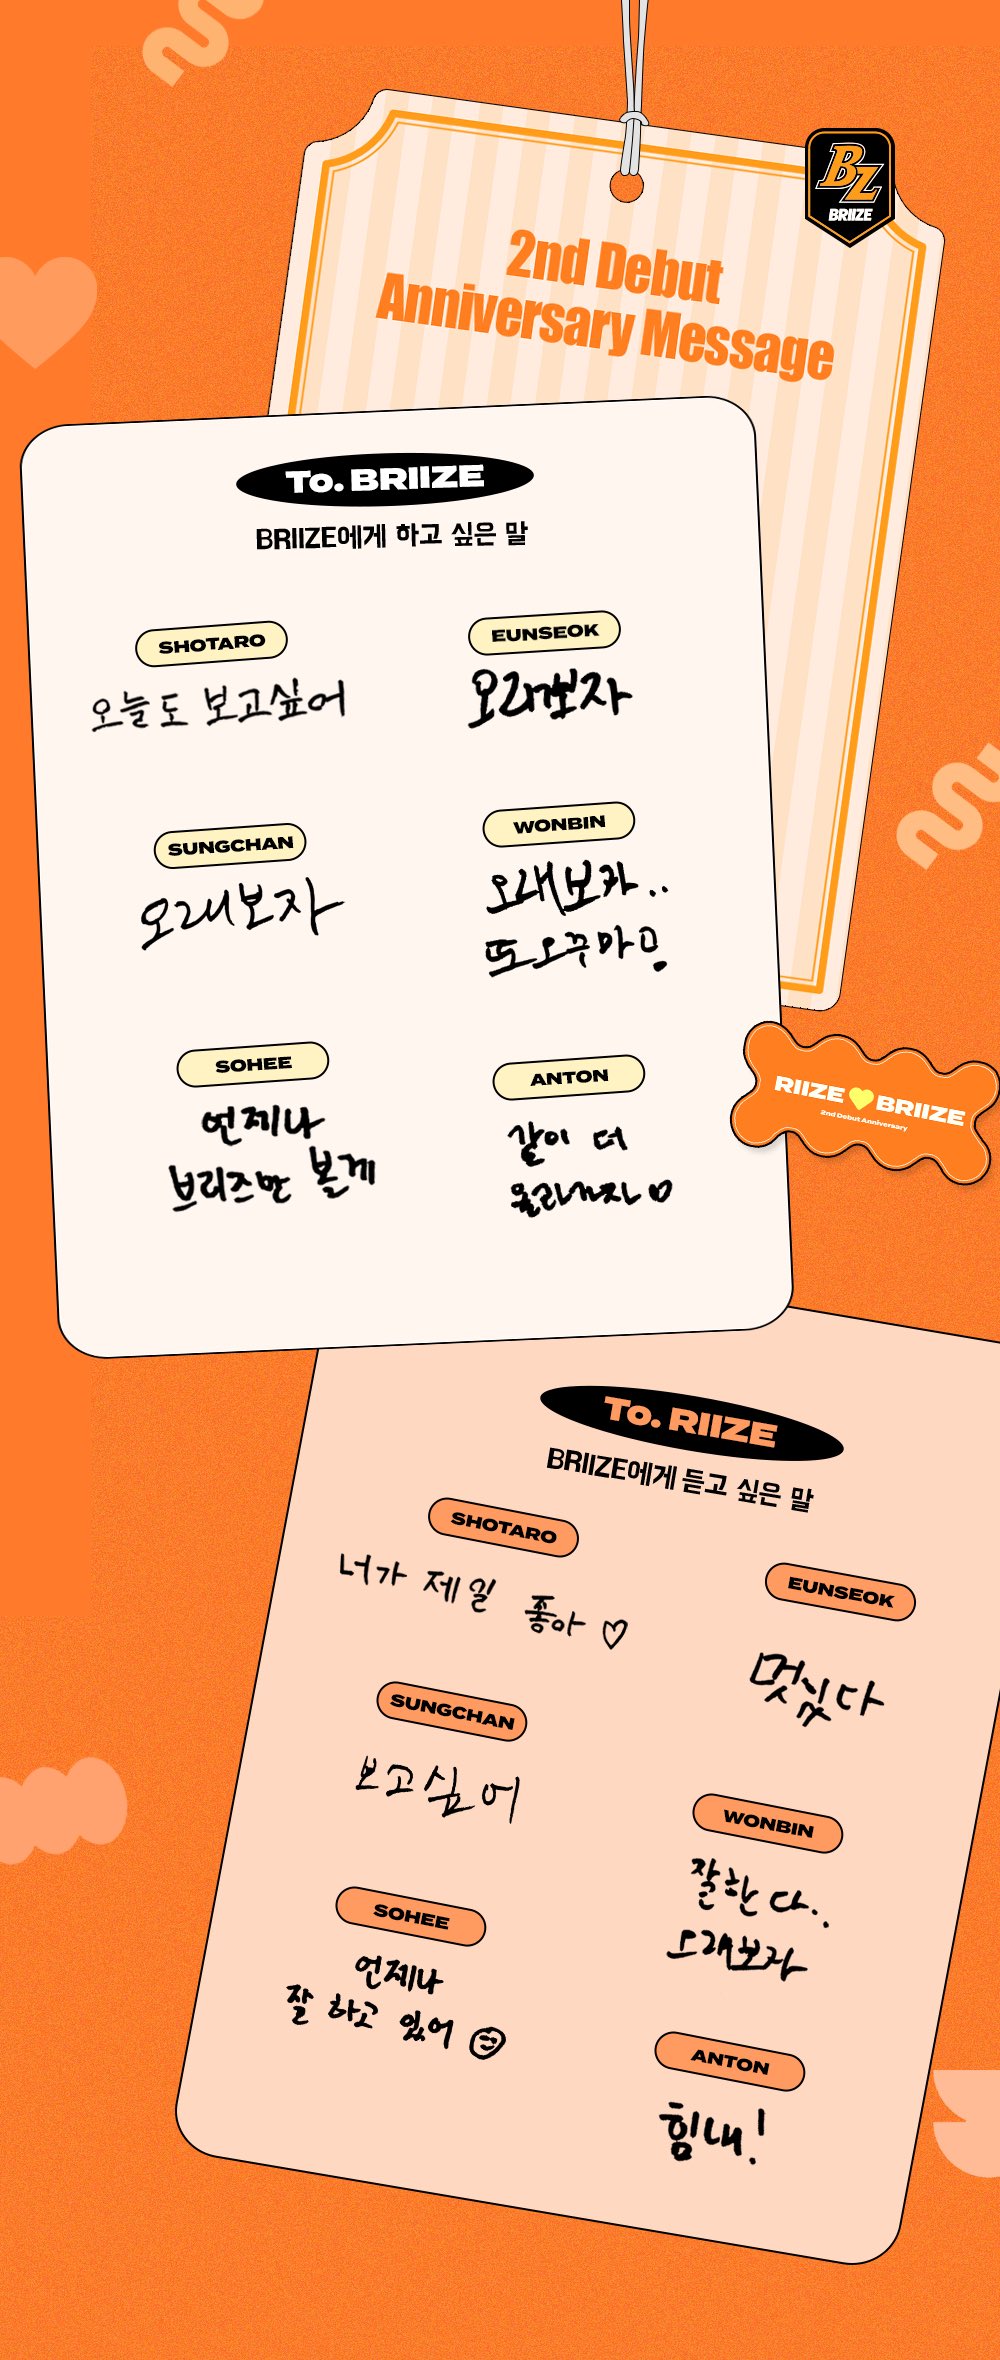 BZ
BRIIZE
2nd Debut
Anniversary Message
To. BRIIZE
BRIIZE에게 하고 싶은 말
SHOTARO
오늘도 보고싶어
EUNSEOK
오래보자
SUNGCHAN
오래보자
WONBIN
오래보자..
SOHEE
언제나
브리즈만 볼게
ANTON
같이 더
올라가자 ♡
RIIZE BRIIZE
2nd Debut Anniversary
To. RIIZE
BRIIZE에게 듣고 싶은 말
SHOTARO
너가 제일 좋아 ♡
EUNSEOK
멋있다
SUNGCHAN
보고싶어
WONBIN
잘한다..
오래보자
SOHEE
언제나
잘 하고 있어
ANTON
힘내!